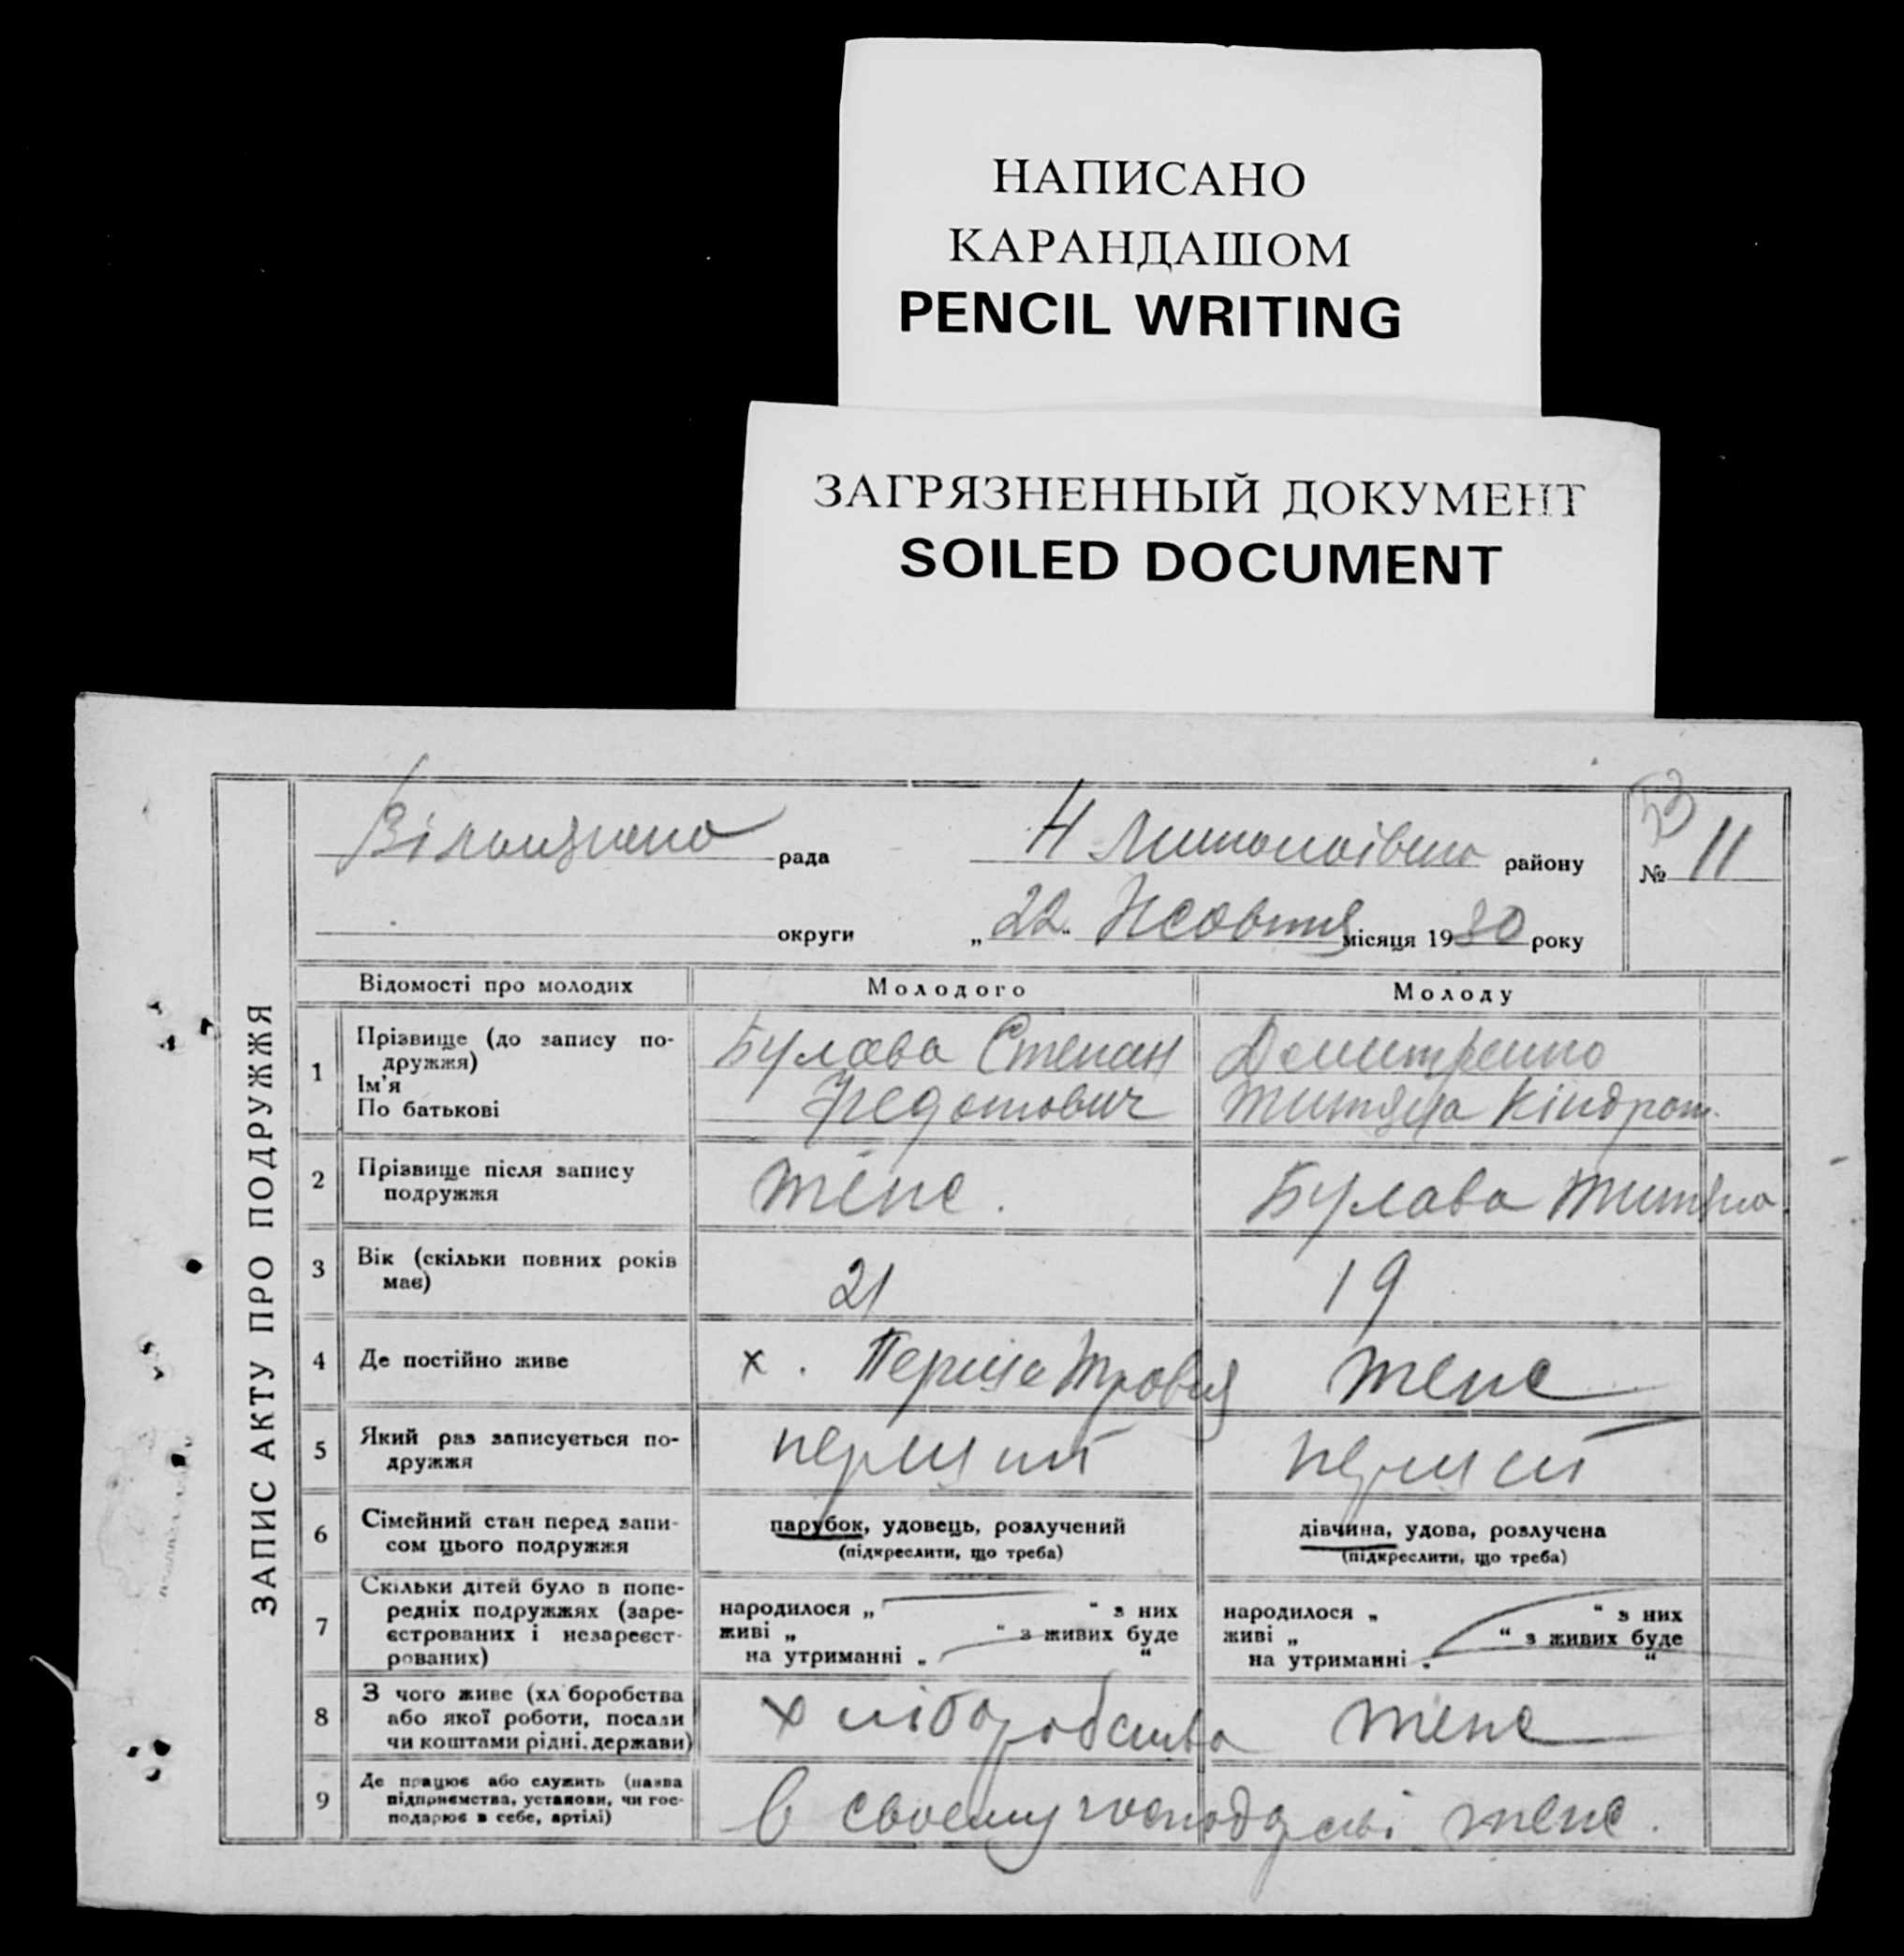 НАПИСАНО
КАРАНДАШОМ
PENCIL WRITING
ЗАГРЯЗНЕННЫЙ ДОКУМЕНТ
SOILED DOCUMENT
ЗАПИС АКТУ ПРО ПОДРУЖЖЯ
рада Н району № 11
округи „ 22 “ Жовтня місяця 1930 року
Відомості про молодих Молодого Молоду
1 Прізвище (до запису по-
дружжя)
Ім'я
По батькові
Булава Степан
Федотович
Демитренко
Кіндрат.
2 Прізвище після запису
подружжя
теж.
Булава
3 Вік (скільки повних років
має)
21 19
4 Де постійно живе х. Перше Травня теж
5 Який раз записується по-
дружжя
перший перший
6 Сімейний стан перед запи-
сом цього подружжя
парубок, удовець, розлучений
(підкреслити, що треба)
дівчина, удова, розлучена
(підкреслити, що треба)
7 Скільки дітей було в попе-
редніх подружжях (заре-
єстрованих і незареєст-
рованих)
народилося „ “ з них
живі „ “ з живих буде
на утриманні „ “
народилося „ “ з них
живі „ “ з живих буде
на утриманні „ “
8 З чого живе (хл боробства
або якої роботи, посали
чи коштами рідні, держави)
хліборобства теж
9 Де працює або служить (назва
підприємства, установи, чи гос-
подарює в себе, артілі)
в своєму господарсві теж.